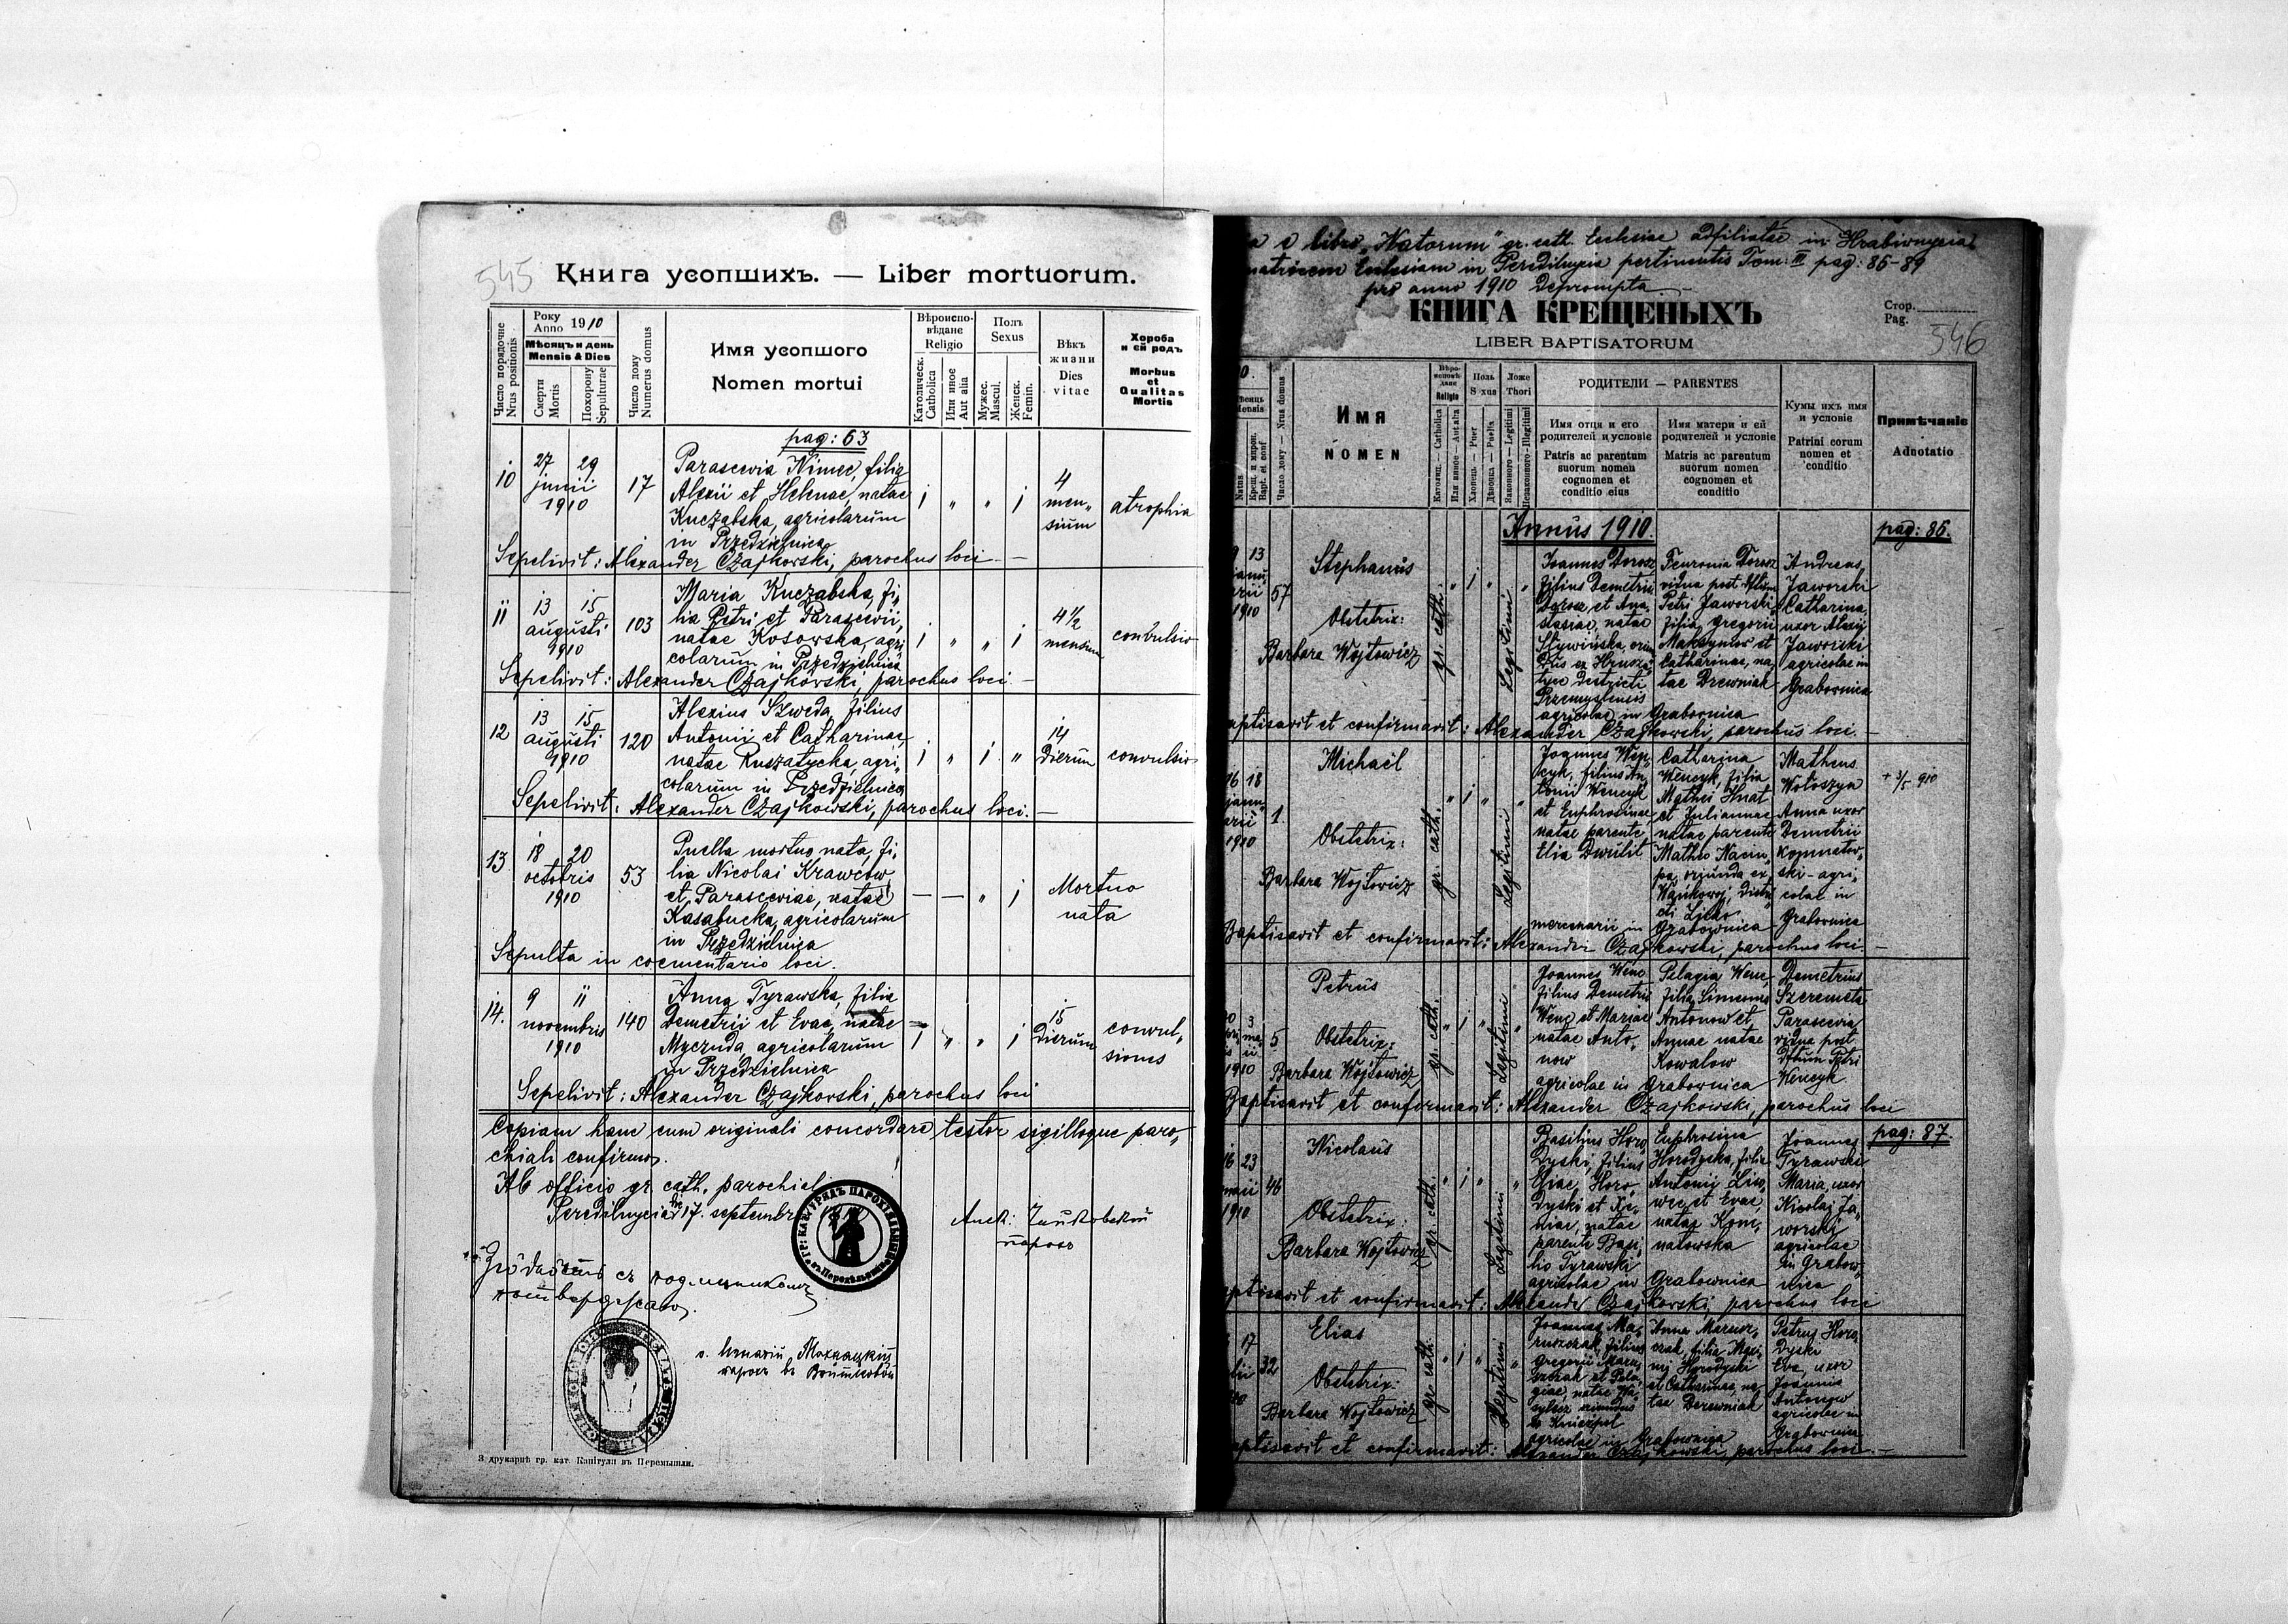 545
Книга усопшихъ. — Liber mortuorum.
Число порядочне
Nrus positionis
Року
Anno 1910
Мѣсяцъ и день
Mensis & Dies
Смерти
Mortis
Похорону
Sepulturae
Число дому
Numerus domus
Имя усопшого
Nomen mortui
Вѣроиспо-
вѣдане
Religio
Католическ.
Catholica
Или иное
Aut alia
Полъ
Sexus
Мужес.
Mascul.
Женск.
Femin.
Вѣкъ
жизни
Dies
vitae
Хороба
и єй родъ
Morbus
et
Qualitas
Mortis
pag: 63
10 27 29 junii 1910 17
Parascevia Nimec, filia
Alexii et Helenae, natae
Kuczabska, agricolarum
in Przedzielnica
4 mensium atrophia
Sepelivit: Alexander Czajkowski, parochus loci —
11 13 15 augusti 1910 103
Maria Kuczabska, fi„
lia Petri et Parascevii,
natae Kosowska, agri
colarum in Przedzielnica
4 1/2 mensium convulsio
Sepelivit: Alexander Czajkowski, parochus loci —
12 13 15 augusti 1910 120
Alexius Szweda, filius
Antonii et Catharinae,
natae Ruszatycka, agri„
colarum in Przedzielnica
14 dierum convulsio
Sepelivit: Alexander Czajkowski, parochus loci. —
13 18 20 octobris 1910 53
Puella mortuo nata, fi„
lia Nicolai Krawców
et Parasceviae, natae
Kasabucka, agricolarum
in Przedzielnica
Mortuo nata
Sepulta in coementario loci.
14. 9 11 novembris 1910 140
Anna Tyrawska, filia
Demetrii et Evae, natae
Myczuda, agricolarum
in Przedzielnica
15 dierum convul„
siones
Sepelivit: Alexander Czajkovski, parochus loci
Copiam hanc cum originali concordare testor sigilloque paro„
chiali confirmo.
Ab officio gr. cath. parochiali
Peredilnycia die 17. septembr
Алек: Чайковскій
парох
съ подлинникомъ
потверджаю.
парох в Войтковой
З друкарнѣ гр. кат. Капітули въ Перемышли.
libro „Natorum" gr. cath. Ecclesiae adfiliatae in Hrabiwnycia
matricem Ecclesiam in Peredilnycia pertinentis Tom: III pag: 86-89
pro anno 1910 deprompta —
КНИГА КРЕЩЕНЫХЪ
LIBER BAPTISATORUM
Стор.
Pag.
546
Natus
Крещ. и миров.
Bapt. et conf
Число дому — Nrus domus
ИМЯ
NOMEN
Вѣро-
исповѣ-
дане
Religio
Католиц. — Catholica
Или инное — Aut alia
Поль
Sexus
Хлопець — Puer
Дѣвонка — Puella
Ложе
Thori
Законного — Legitimi
Незаконного — Illegitimi
РОДИТЕЛИ — PARENTES
Имя отця и его
родителей и условіе
Patris ac parentum
suorum nomen
cognomen et
conditio eius
Имя матери и ей
родителей и условіе
Matris ac parentum
suorum nomen
cognomen et
conditio
Кумы ихъ имя
и условіе
Patrini eorum
nomen et
conditio
Примѣчаніе
Adnotatio
Annus 1910.
pag: 86.
13 1910 57
Stephanus
Obstetrix:
Barbara Wojtowicz
gr. cath.
Legitimi
Joannes Dorosz
filius Demetrii
Dorosz et Ana
stasiae, natae
Przemyslensis
agricolae in Grabownica
Feuronia Dorosz
vidua post dftum
Petri Jaworski
filia Gregorii
Maksymów et
Catharinae, na„
tae Drewniak
Andreas
Jaworski
Catharina,
uxor Alexii
Jaworski
agricolae in
Grabownica
Baptisavit et confirmavit: Alexander Czajkowski, parochus loci. —
16 18 1910 1
Michaël
Obstetrix:
Barbara Wojtowicz
gr. cath.
Legitimi
Joannes Wen„
cyk, filius An„
tonii Wencyk
et Euphrosinae,
natae parente
Elia Dwulit
mercenarii in Grabownica
Catharina
Wencyk, filia
Mathei Hnat
et Julianae
natae parente
Matheo
oriunda ex
Matheus
Wołoszyn
Anna uxor
Demetrii
agri„
colae in
Grabownica
+ 3/5 910
Baptisavit et confirmavit: Alexander Czajkowski, parochus loci. —
3 1910 5
Petrus
Obstetrix:
Barbara Wojtowicz
gr. cath.
Legitimi
Joannes Wenc
filius Demetrii
Wenc et Mariae
natae Anto„
now
agricolae in Grabownica
Pelagia Wenc,
filia Simeonis
Antonow et
Annae natae
Kowalow
Demetrius
Szeremeta
Parascevia
vidua post
dftum Petri
Wencyk
Baptisavit et confirmavit: Alexander Czajkowski, parochus loci
pag: 87.
16 23 maii 1910 46
Nicolaus
Obstetrix:
Barbara Wojtowicz
gr. cath.
Legitimi
Basilius Horo„
dyski, filius
Eliae Horo„
dyski et Xe„
niae, natae
parente Basi„
lio Tyrawski
agricolae in Grabownica
Euphrosina
Horodyska, filia
Antonii
et Evae,
natae Kom„
natowska
Joannes
Tyrawski
Maria, uxor
Nicolai Ja„
worski
agricolae
in Grabow„
nica
Baptisavit et confirmavit: Alexander Czajkovski, parochus loci
17 32
Elias
Obstetrix:
Barbara Wojtowicz
gr. cath.
Legitimi
Joannes Ma„
ruszczak, filius
Gregorii
et Pela„
giae, natae
agricolae in Grabownica
Anna Marusz„
czak, filia
Horodyski
et Catharinae, na„
tae Derewniak
Petrus Horo„
dyski
Eva, uxor
Joannis
Antonow
agricolae in
Grabownica
Baptisavit et confirmavit: Alexander Czajkowski, parochus loci. —